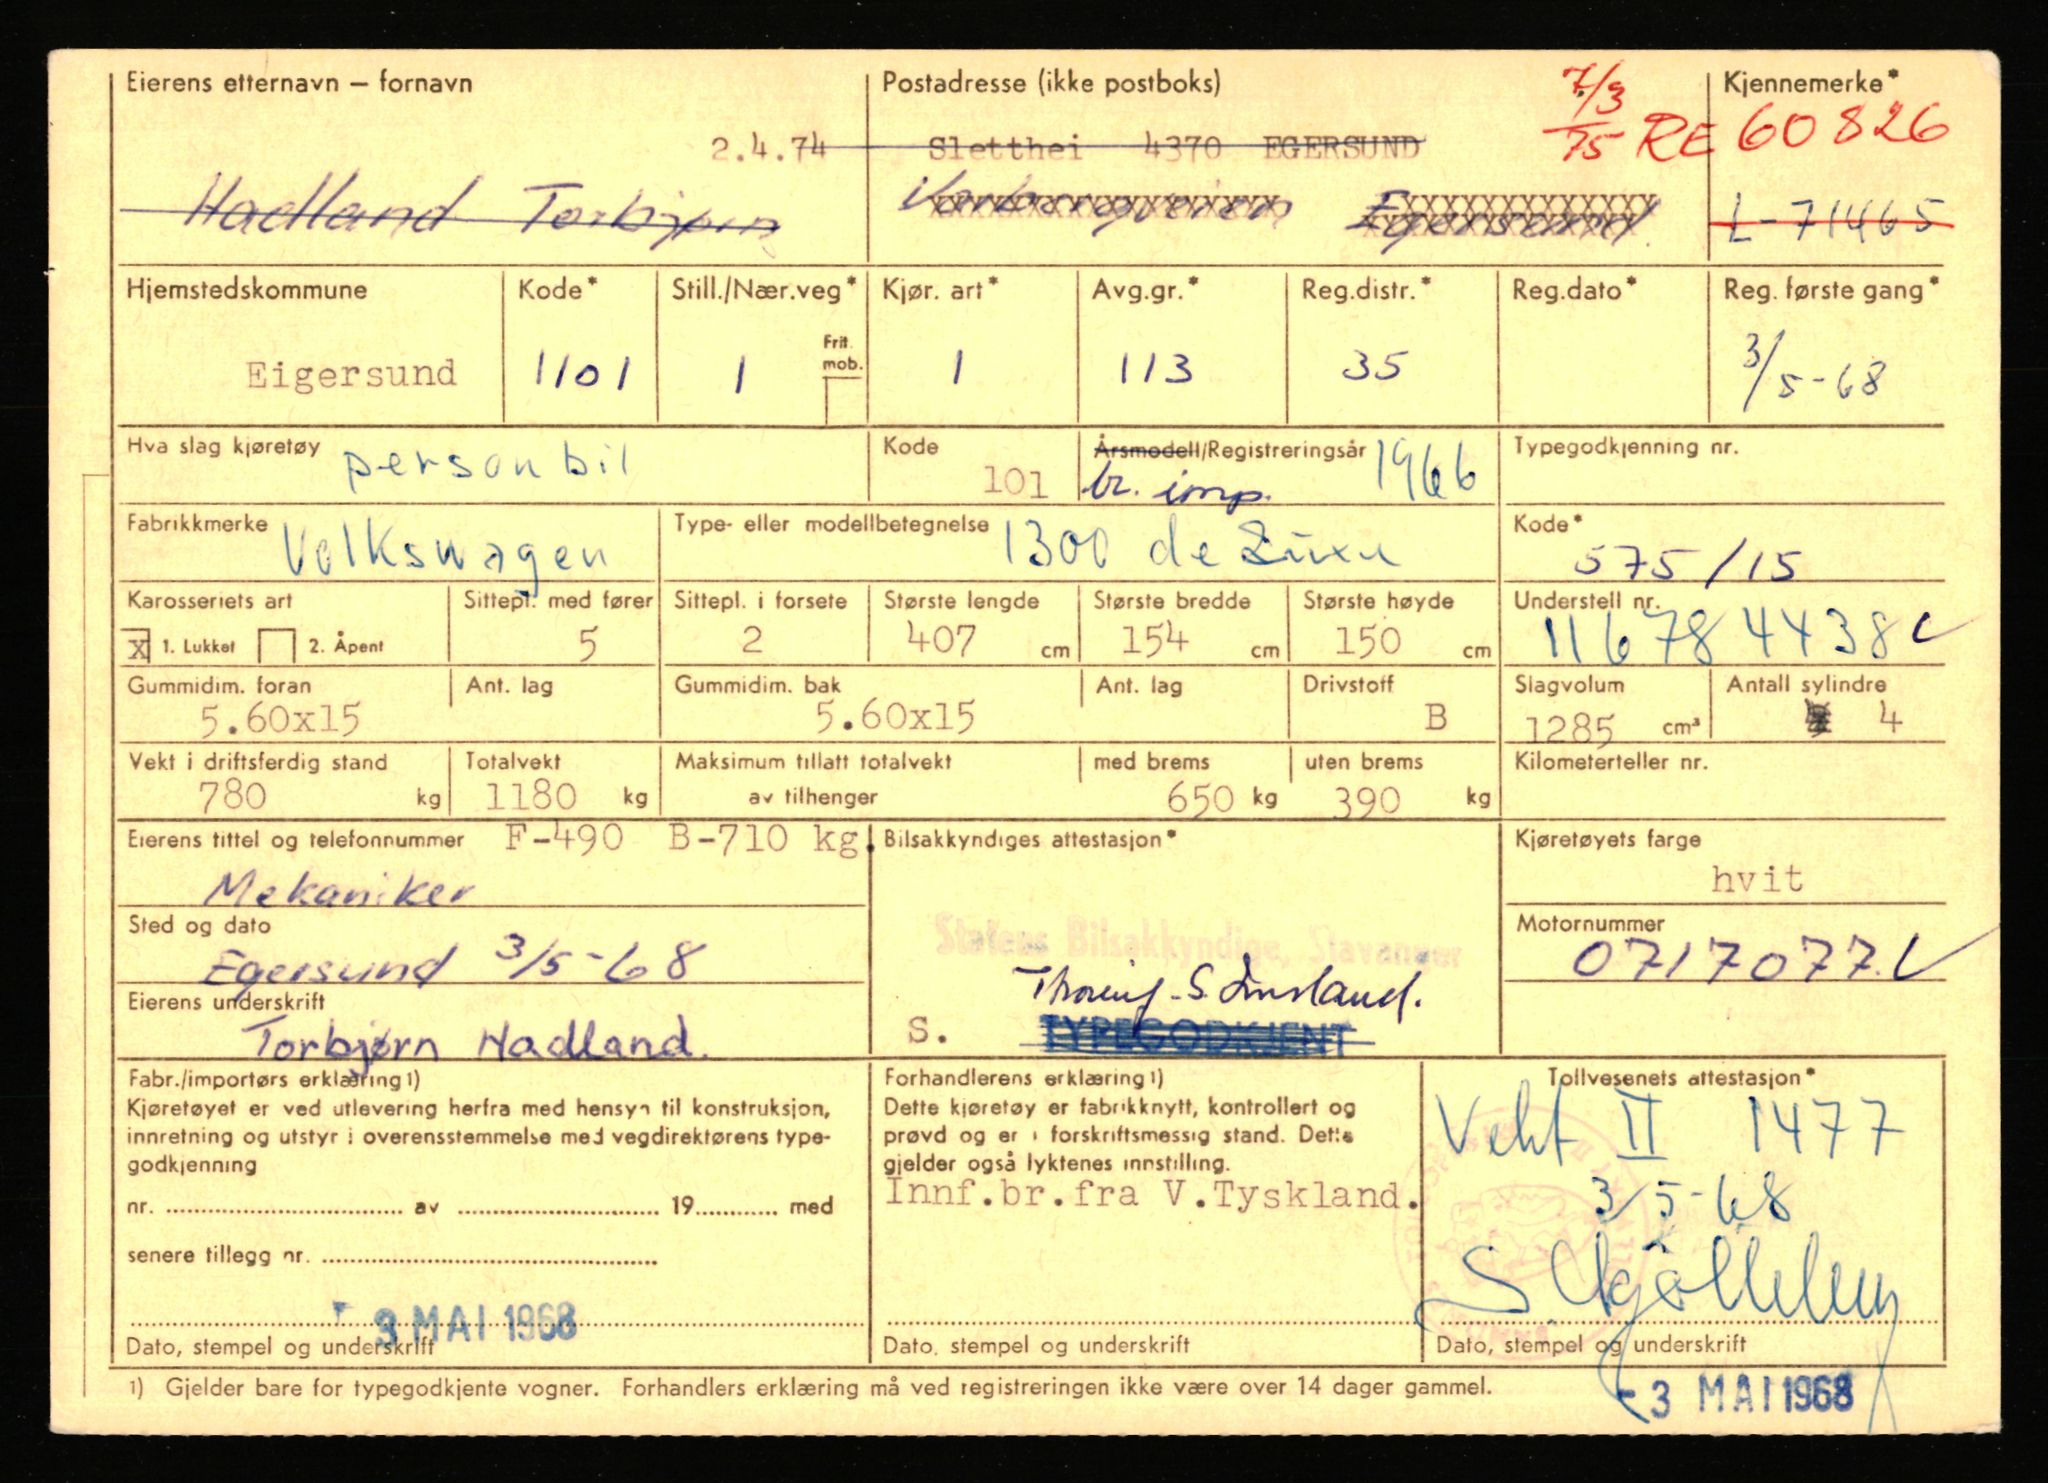 Eierens etternavn — fornavn
Postadresse (ikke postboks)
7/3
75 RE 60826
Kjennemerke*
2.4.74 Sletthei 4370 EGERSUND
Hadland Torbjørn
Egersund
L-71465
Hjemstedskommune
Kode*
Still./Nær.veg*
Kjør. art*
Avg.gr.*
Reg.distr.*
Reg.dato*
Reg. første gang*
Eigersund
1101
1
Frit. mob.
1
113
35
3/5-68
Hva slag kjøretøy
personbil
Kode
101
Årsmodell/Registreringsår
br. imp.
1966
Typegodkjenning nr.
Fabrikkmerke
Volkswagen
Type- eller modellbetegnelse
1300 de Luxe
Kode*
575/15
Karosseriets art
Sittepl. med fører
Sittepl. i forsete
Største lengde
Største bredde
Største høyde
Understell nr.
X 1. Lukket 2. Åpent
5
2
407 cm
154 cm
150 cm
116784438
Gummidim. foran
Ant. lag
Gummidim. bak
Ant. lag
Drivstoff
Slagvolum
Antall sylindre
5.60x15
5.60x15
B
1285 cm³
4
Vekt i driftsferdig stand
Totalvekt
Maksimum tillatt totalvekt
med brems
uten brems
Kilometerteller nr.
780 kg
1180 kg
av tilhenger
650 kg
390 kg
Eierens tittel og telefonnummer F-490 B-710 kg.
Mekaniker
Bilsakkyndiges attestasjon*
Kjøretøyets farge
hvit
Sted og dato
Egersund 3/5-68
Statens Bilsakkyndige, Stavanger
Motornummer
0717077
Eierens underskrift
Torbjørn Hadland
S.
TYPEGODKJENT
Fabr./importørs erklæring 1)
Kjøretøyet er ved utlevering herfra med hensyn til konstruksjon,
innretning og utstyr i overensstemmelse med vegdirektørens type-
godkjenning
nr. .......... av .......... 19.......... med
senere tillegg nr. ..........
3 MAI 1968
Dato, stempel og underskrift
Forhandlerens erklæring 1)
Dette kjøretøy er fabrikknytt, kontrollert og
prøvd og er i forskriftsmessig stand. Dette
gjelder også lyktenes innstilling.
Innf.br.fra V.Tyskland.
Dato, stempel og underskrift
Tollvesenets attestasjon*
Vekt II 1477
3/5-68
Dato, stempel og underskrift
1) Gjelder bare for typegodkjente vogner. Forhandlers erklæring må ved registreringen ikke være over 14 dager gammel.
-3 MAI 1968